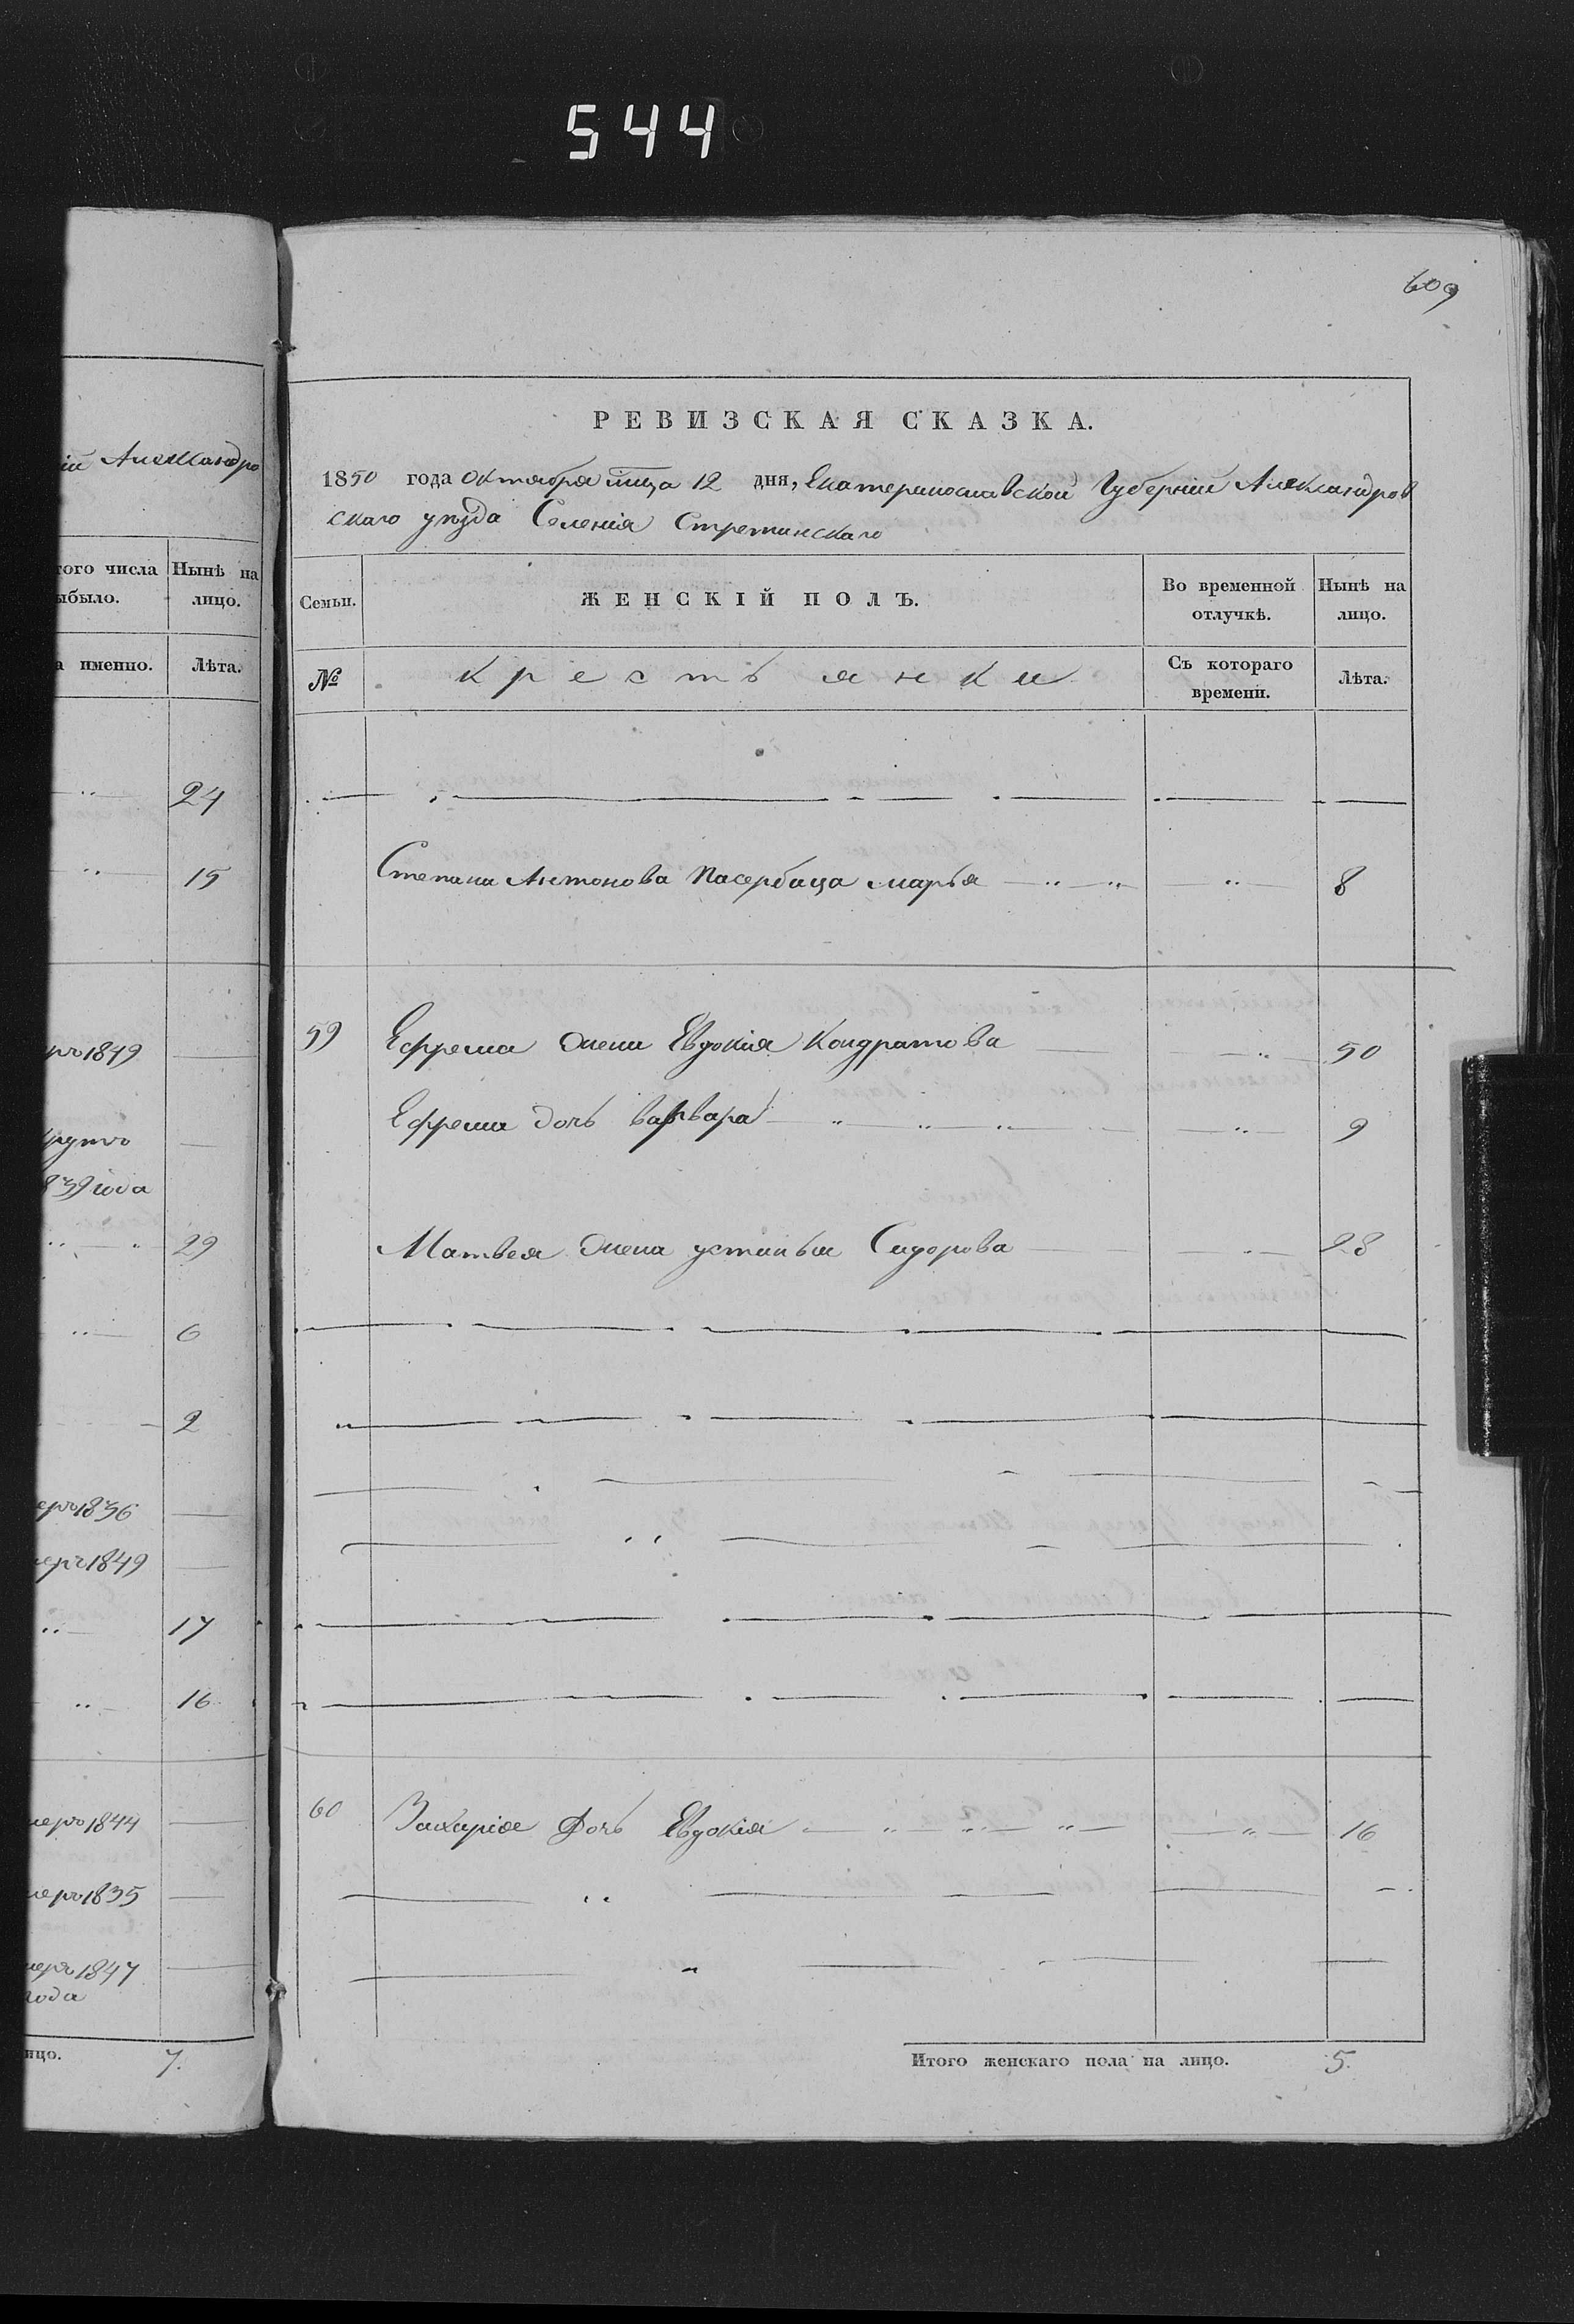 544
609
РЕВИЗСКАЯ СКАЗКА.
1850 года Октября мца 12 дня, Екатеринославской Губерніи Александров
скаго уѣзда Селенія Стретинскаго
Семьи.
ЖЕНСКІЙ ПОЛЪ.
Во временной отлучкѣ.
Нынѣ на лицо.
№
крестьянки
Съ котораго времени.
Лѣта.
Степана Антонова Пасербица марья 8
59 Ефрема жена Евдокія Кондратова 50
Ефрема дочь варвара 9
Матвея жена устинья Сидорова 28
60 Захарія Дочь Евдокія 16
Итого женскаго пола на лицо. 5.
ій Александро
того числа
ыбыло.
Нынѣ на
лицо.
а именно.
Лѣта.
24
15
1849
839 года
29
6
2
1836
1849
17
16
1844
1835
1847
года
ицо. 7.